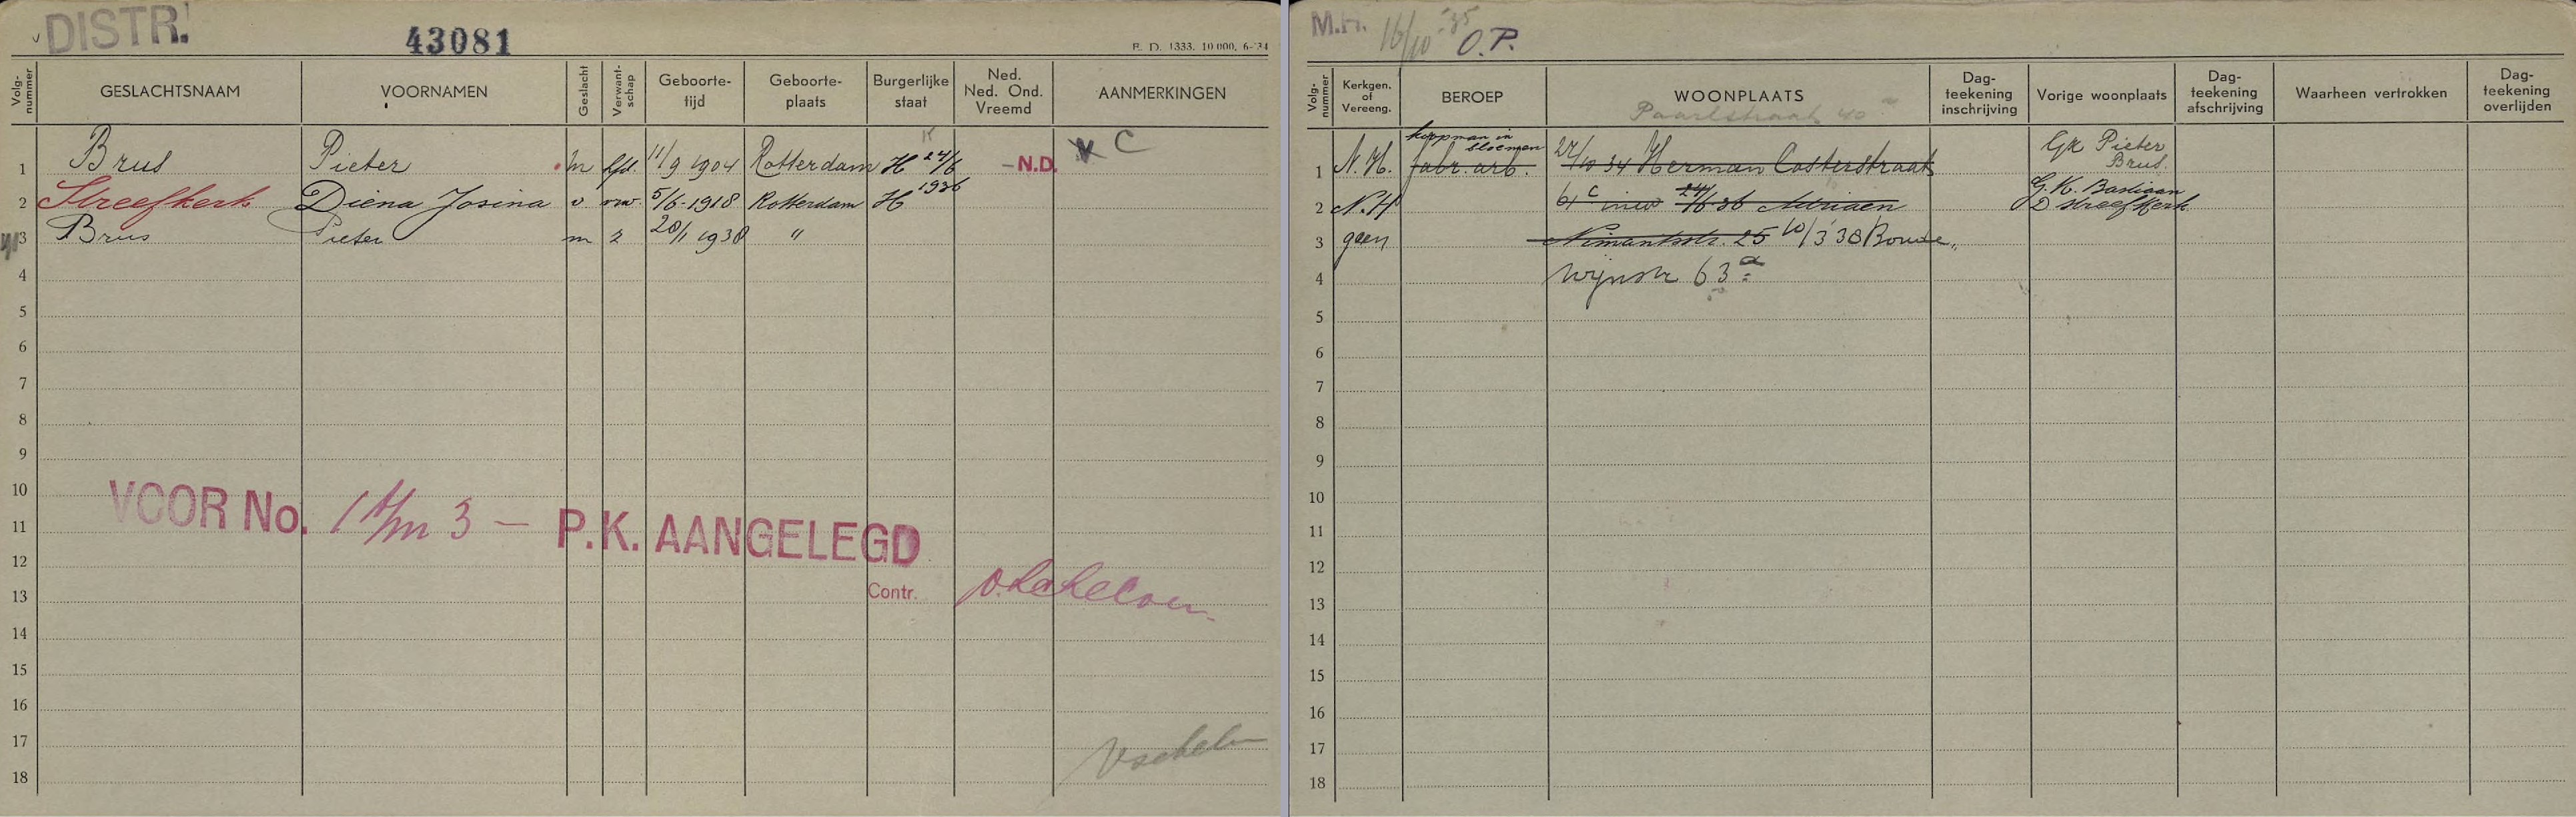 DISTR.
43081
E. D. 1333. 10.000, 6-'34
Volg-nummer GESLACHTSNAAM VOORNAMEN Geslacht Verwant-schap Geboorte-tijd Geboorte-plaats Burgerlijke staat Ned. Ned. Ond. Vreemd AANMERKINGEN
1 Brus Pieter m hfd. 11/9 1904 Rotterdam H 24/6 1936 - N.D. C
2 Streefkerk Diena Josina v vrw. 5/6-1918 Rotterdam H
3 Brus Pieter m z 20/1 1938 "
4
5
6
7
8
9
10
11
12
13
14
15
16
17
18
VOOR No. 1 t/m 3 - P.K. AANGELEGD
Contr.
M.H. 16/10 -35 O.P.
Volg-nummer Kerkgen. of Vereeng. BEROEP WOONPLAATS Dag-teekening inschrijving Vorige woonplaats Dag-teekening afschrijving Waarheen vertrokken Dag-teekening overlijden
Paarlstraat 40
koopman in bloemen
1 N.H. fabr. arb. 27/10 34 Herman Costerstraat Gk Pieter Brus
2 N.H 61 c 24/6 36 Adriaen G.K. Bastiaan D Streefkerk
3 geen Nimantsstr. 25 10/3 38 Boude.
4 wijnstr 63 a
5
6
7
8
9
10
11
12
13
14
15
16
17
18